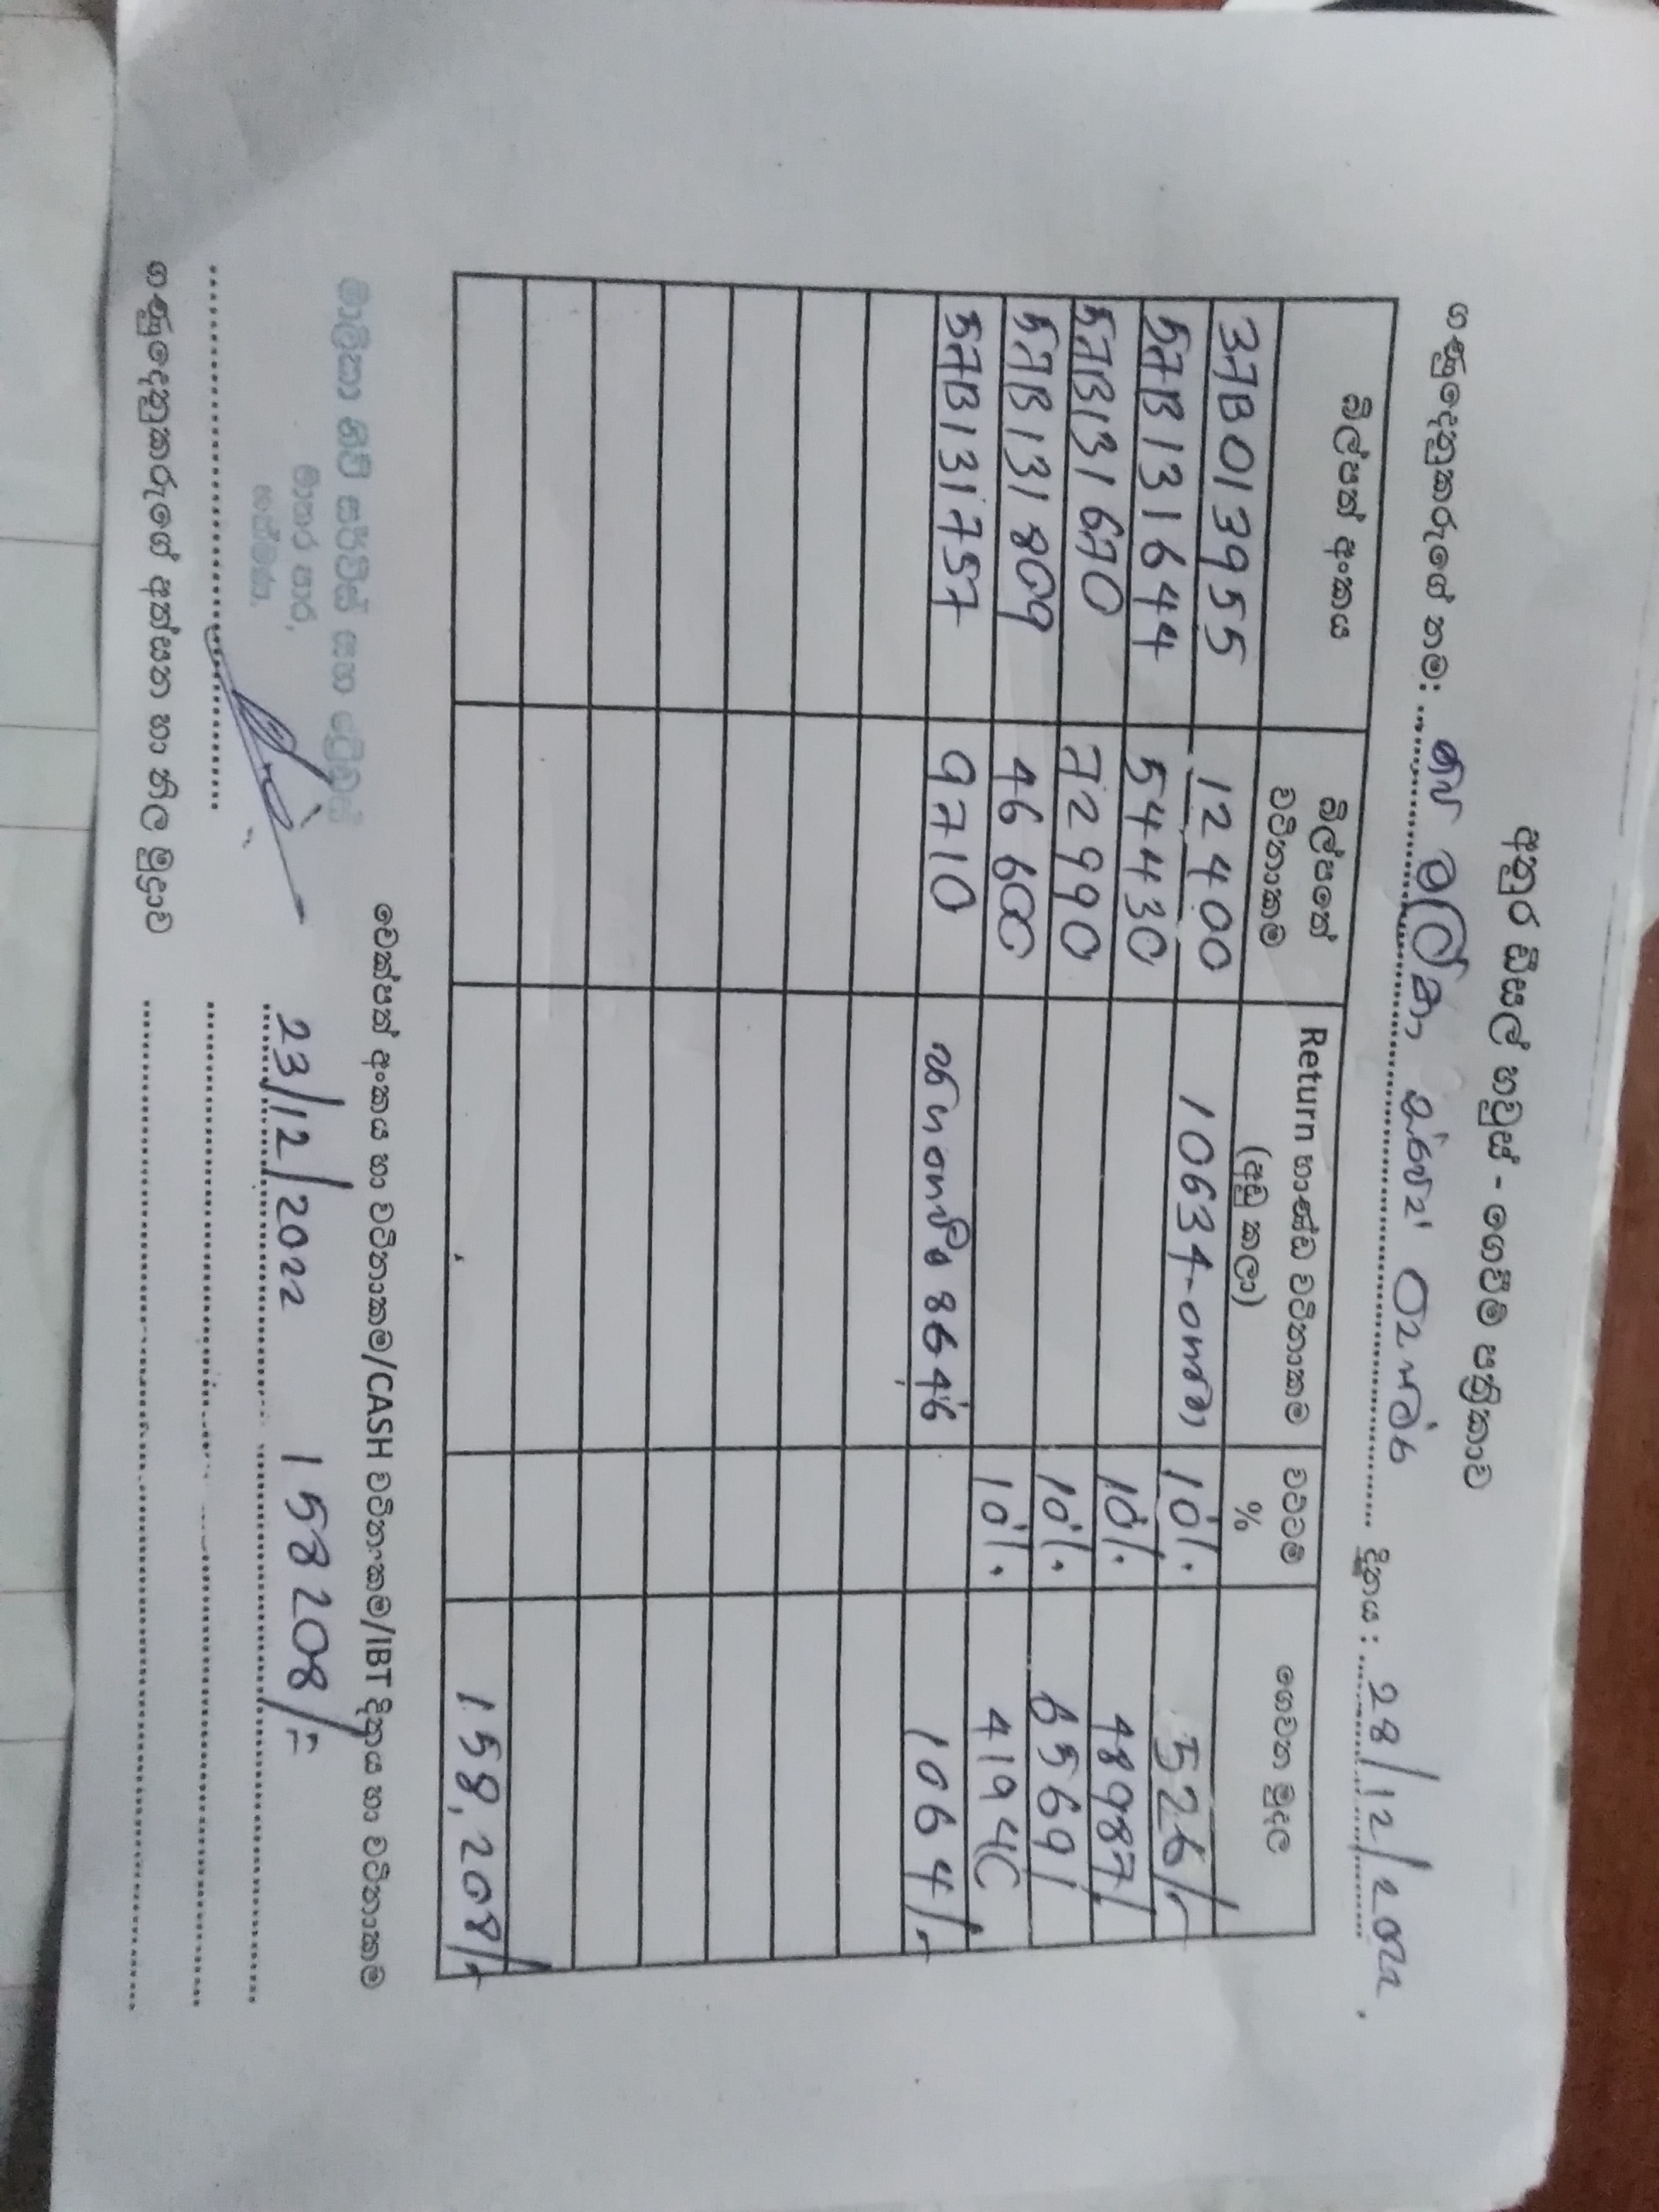 අනුර ඩීසල් හවුස් - ගෙවීම් පත්‍රිකාව
ගණුදෙනුකරුගේ නම: දිනය: 28/12/2022
බිල්පත් අංකය බිල්පතේ වටිනාකම Return භාණ්ඩ වටිනාකම (අඩු කලා) වට්ටම් % ගෙවන මුදල
3AB013955 12400 10634 10% 526/-
5AB131644 54430 10% 48987/
5AB131670 72990 10% 65691
5AB131809 46600 10% 41940
5AB131757 9710 8646 1064/-
158,208/-
චෙක්පත් අංකය හා වටිනාකම/CASH වටිනාකම/IBT දිනය හා වටිනාකම
මාතර පාර,
23/12/2022 158208/=
ගණුදෙනුකරුගේ අත්සන හා නිල මුද්‍රාව